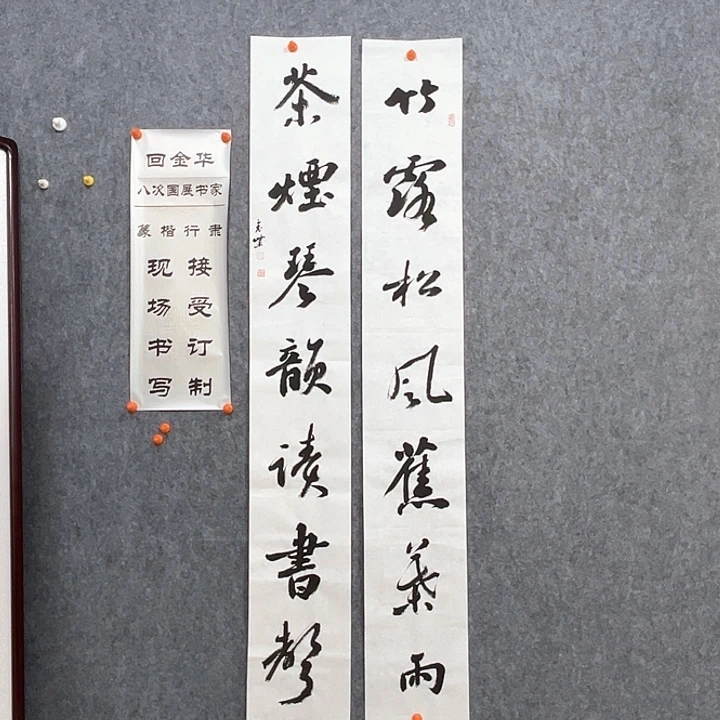 竹露松风蕉葉雨
茶煙琴韻读書聲
回金华
八次国展书家
篆楷行隶
现场书写
接受订制